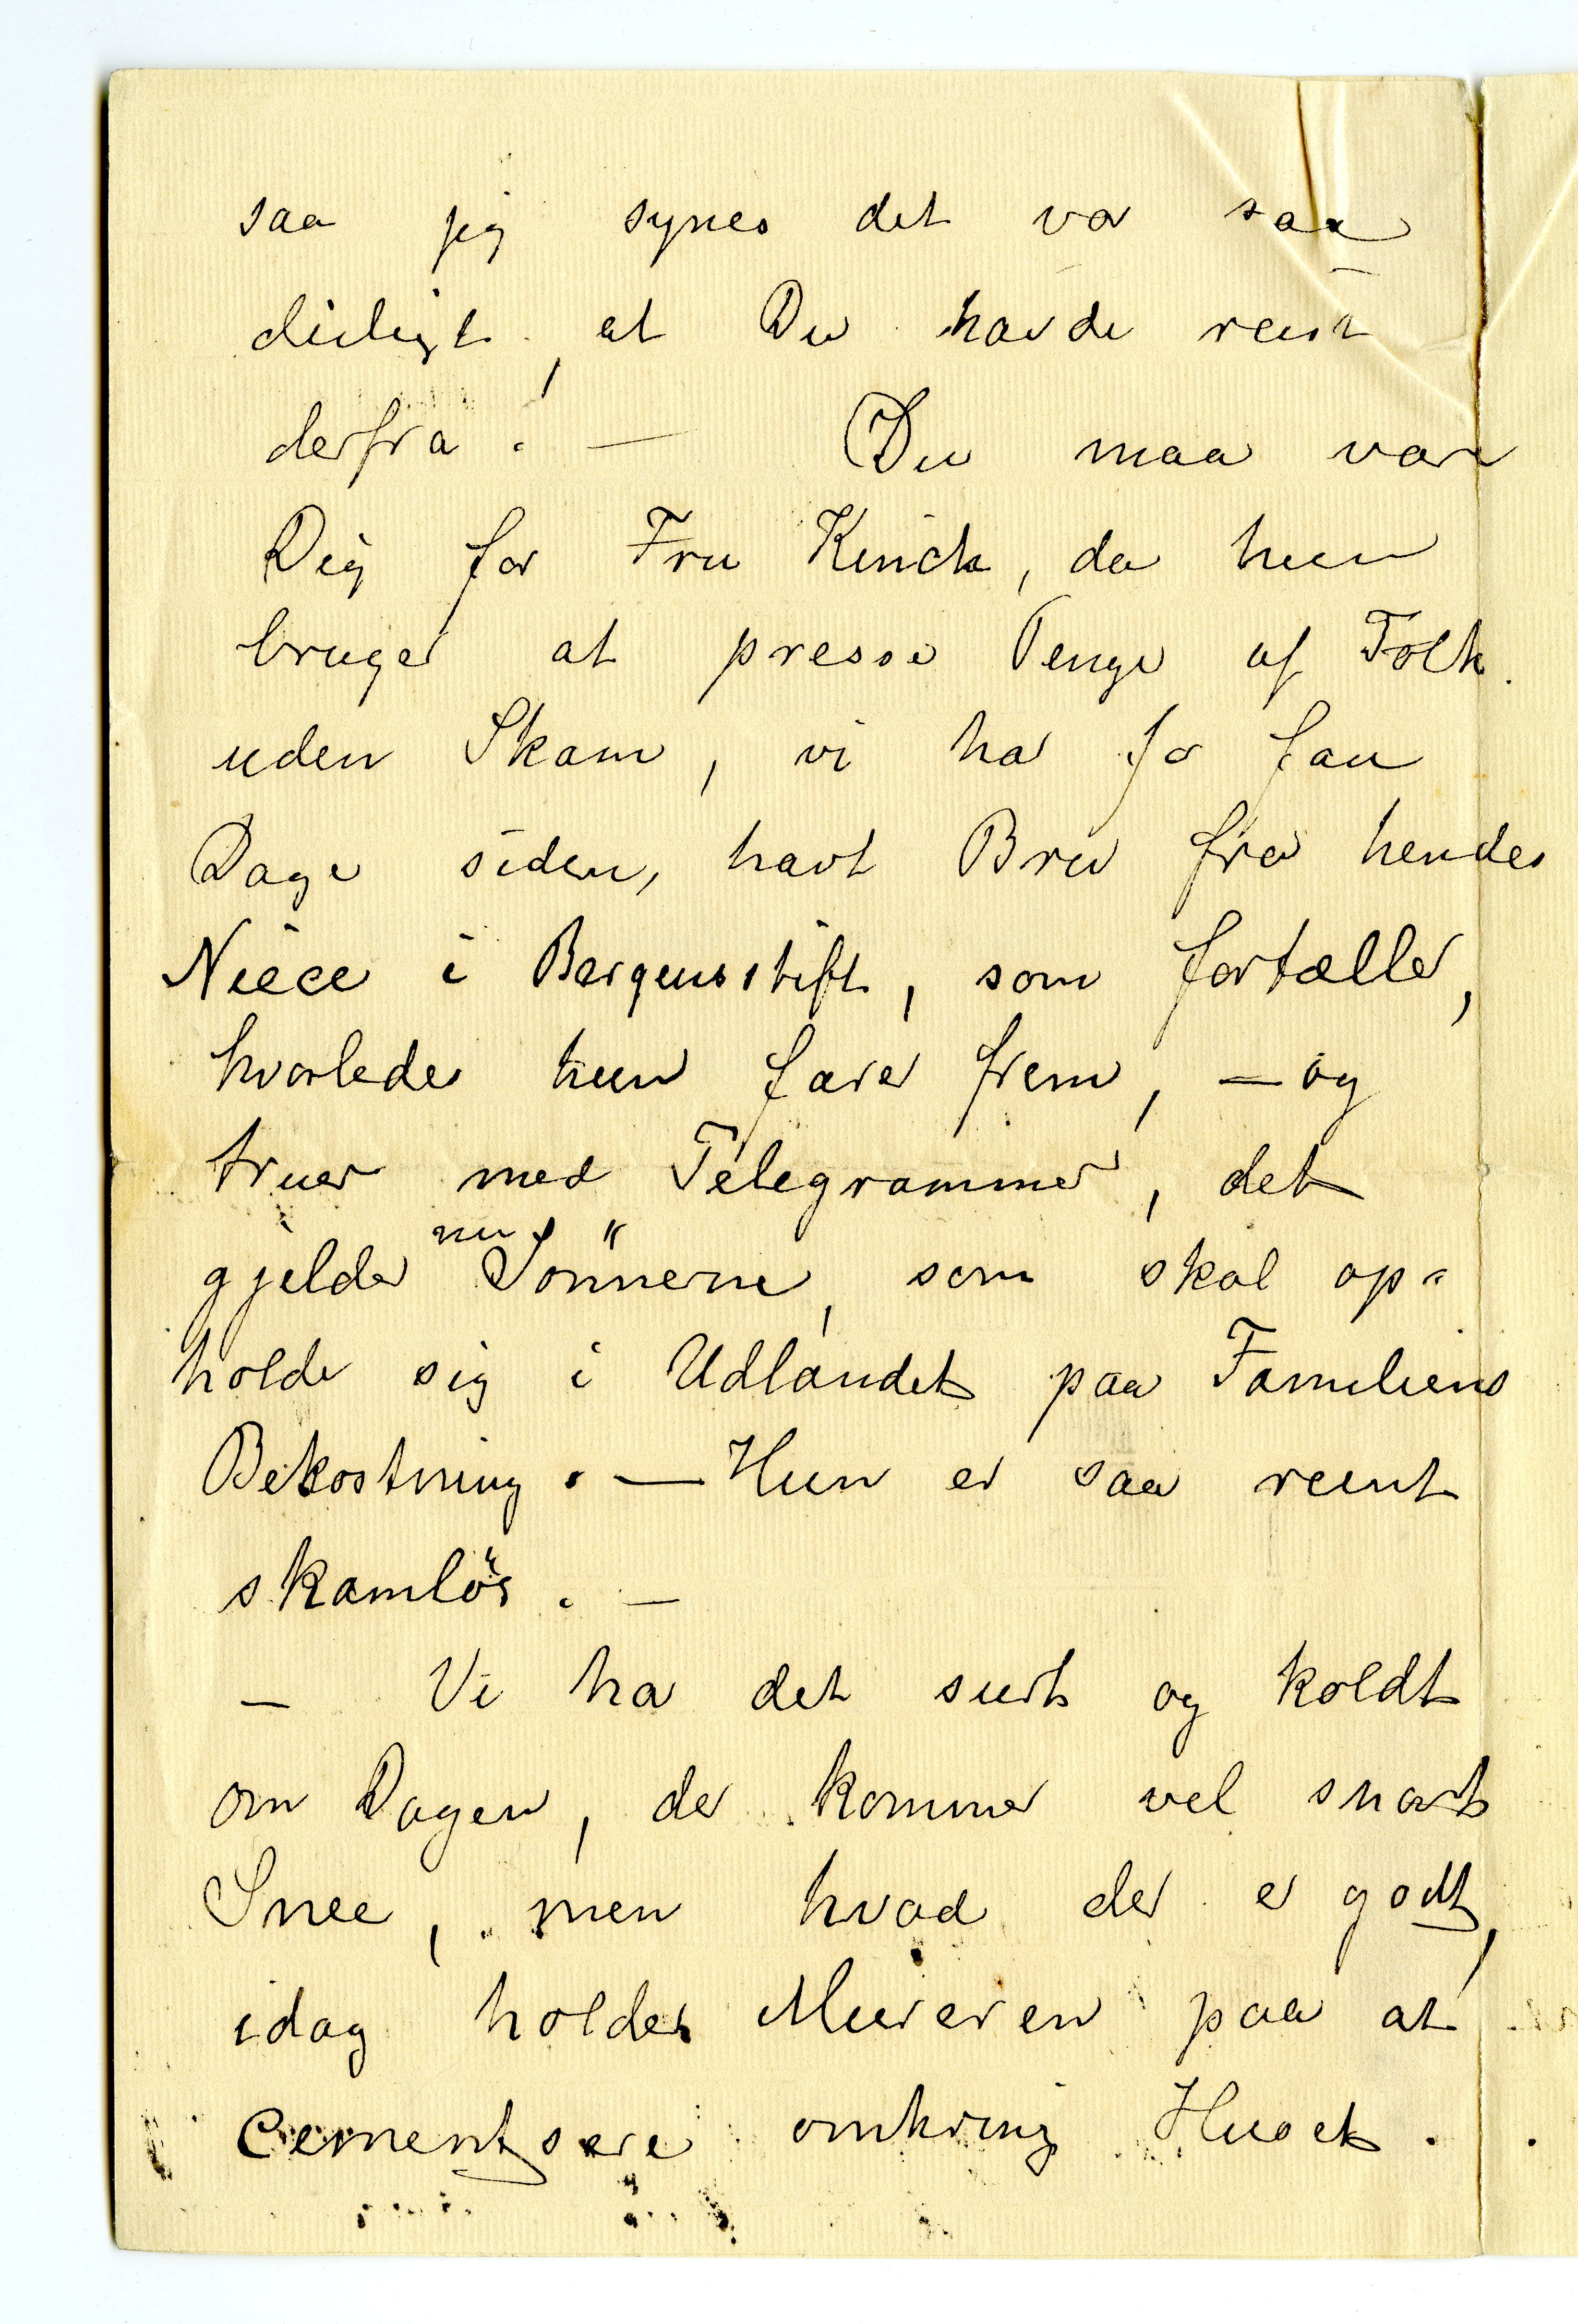 saa jeg synes det var saa
deiligt, at Du havde reist
derfra. — Du maa vare
Dig for Fru Kinck, da hun
bruger at presse Penge af Folk
uden Skam, vi har for faa
Dage siden, havt Brev fra hendes
Niece i Bergensstift, som fortæller,
hvorledes hun farer frem, — og
truer med Telegrammer, det
gjelder nu Sönnerne, som skal op-
holde sig i Udlandet paa Familiens
Bekostning. — Hun er saa reent
skamlös. —
— Vi ha det surt og koldt
om Dagen, der kommer vel snart
Snee, men hvad der er godt,
idag holder Mureren paa at
Cementsere omkring Huset.